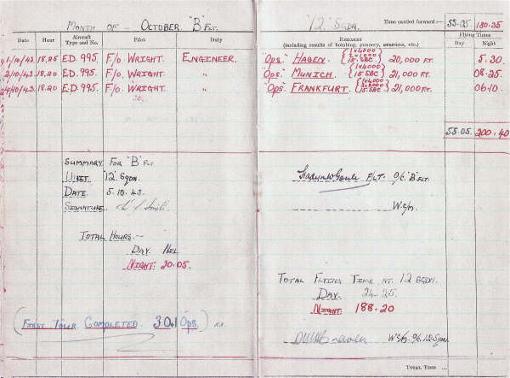 MONTH OF OCTOBER. "B" FLT.
Date Hour Aircraft Type and No. Pilot Duty
1/10/43 18.25 ED.995. F/O. WRIGHT. ENGINEER.
2/10/43 18.20. ED.995. F/O. WRIGHT. "
4/10/43 18.20 ED.995. F/O. WRIGHT. "
SUMMARY FOR "B" FLT
UNIT. 12 SQDN.
DATE. 5.10.43.
SIGNATURE
TOTAL HOURS:-
DAY. NIL
NIGHT. 20.05.
(FIRST TOUR COMPLETED. 30.1 Ops.)
"12" SQDN.
Time carried forward:— 55.25 180.35
REMARKS
(including results of bombing, gunnery, exercises, etc.)
Flying Times
Day Night
"Ops" HAGEN. {1x4000 15.SBC} 20,000 FT. 5.30
"Ops" MUNICH. {1x4000 15.SBC} 21,000 FT. 08.25
"Ops" FRANKFURT. {1x4000 15.SBC} 21,000 FT. 06.10
55.05 200.40
F/LT. O/C "B" FLT.
TOTAL FLYING TIME AT. 12 SQDN.
DAY. 24.25.
NIGHT. 188.20
W/Cdr. O/C. 12 Sqdn
TOTAL TIME ...